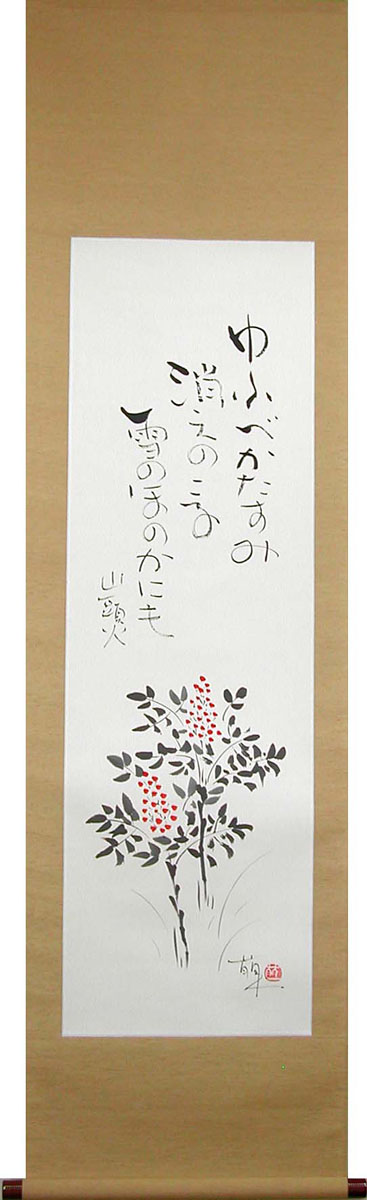 ゆふべかたすみ
消えのこる
雪のほのかにも
山頭火